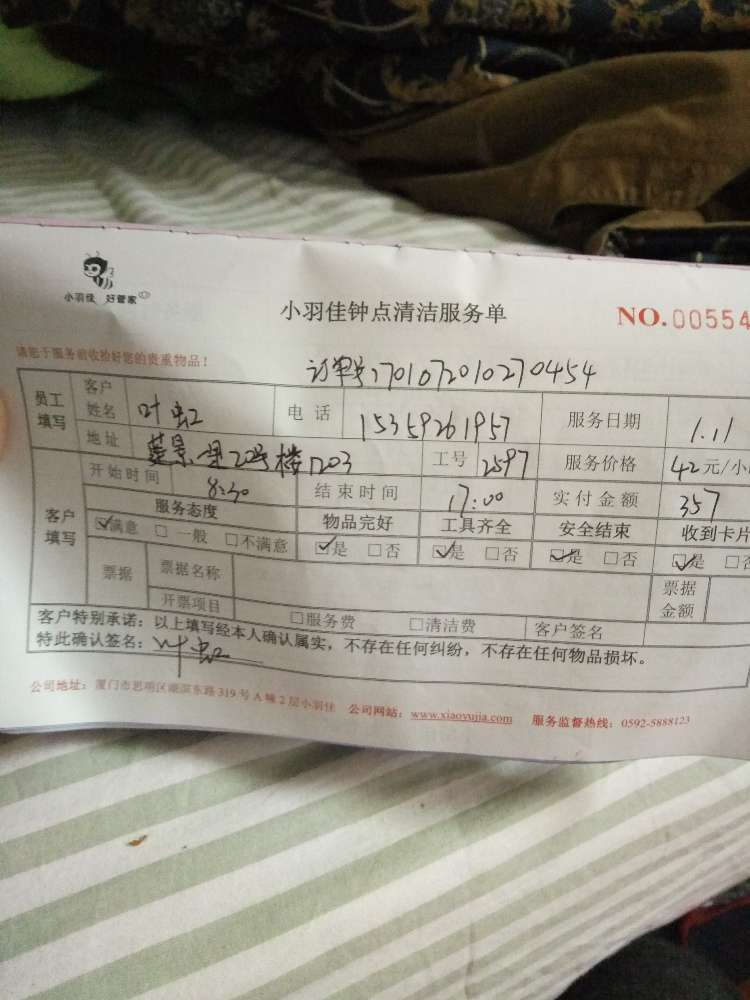 小羽佳 好管家
小羽佳钟点清洁服务单
NO.00554
请您于服务前收拾好您的贵重物品!
订单号:701072010270454
员工填写 客户姓名 叶虹 电话 15359261957 服务日期 1.11
地址 景里20号楼1203 工号 2597 服务价格 42元/小
客户填写 开始时间 8:30 结束时间 17:00 实付金额 357
服务态度 物品完好 工具齐全 安全结束 收到卡片
☑满意 □一般 □不满意 ☑是 □否 ☑是 □否 ☑是 □否 ☑是 □否
票据 票据名称 票据金额
开票项目 □服务费 □清洁费 客户签名
客户特别承诺:以上填写经本人确认属实,不存在任何纠纷,不存在任何物品损坏。
特此确认签名:叶虹
公司地址:厦门市思明区湖滨东路319号A幢2层小羽佳 公司网站:www.xiaoyujia.com 服务监督热线:0592-5888123